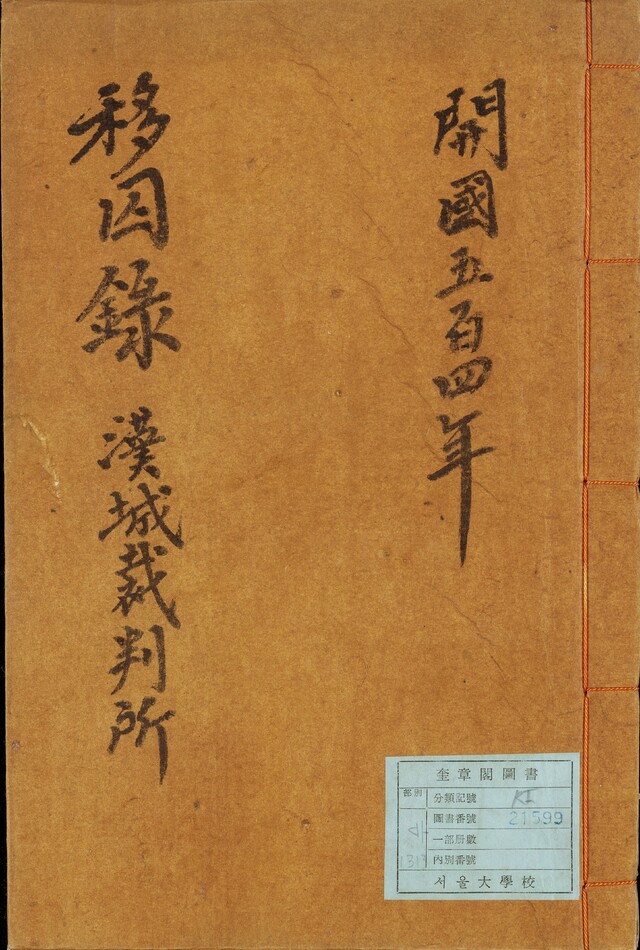 開國五百四年
移囚錄 漢城裁判所
奎章閣圖書
部別
分類記號
圖書番號 21599
一部冊數
內別番號
서울大學校